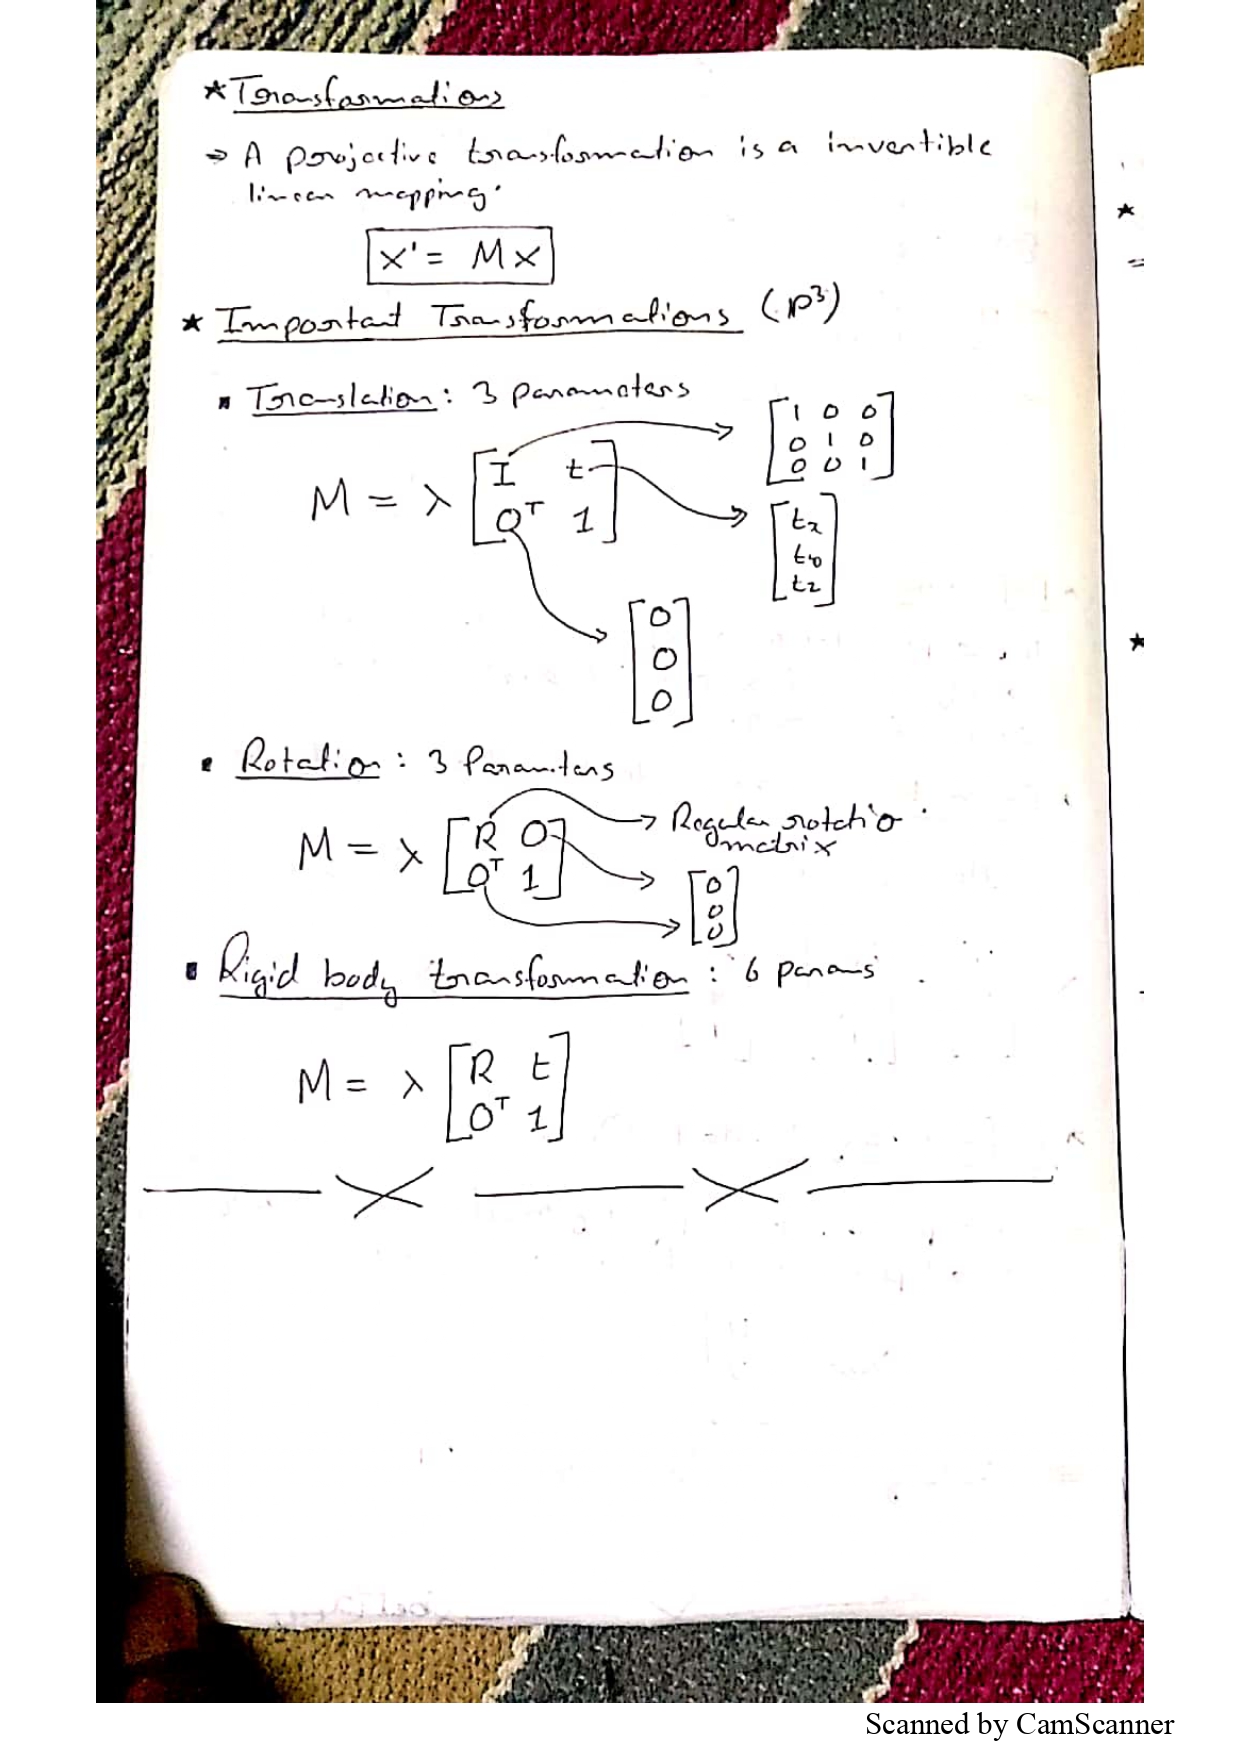 ★ Transformations
⇒ A projective transformation is a invertible
linear mapping.
X' = MX
★ Important Transformations (P³)
▪ Translation : 3 parameters
M = λ [I t
0ᵀ 1]
[1 0 0
0 1 0
0 0 1]
[tx
ty
tz]
[0
0
0]
• Rotation : 3 Parameters
M = λ [R 0
0ᵀ 1]
Regular rotatio
matrix
[0
0
0]
▪ Rigid body transformation : 6 params
M = λ [R t
0ᵀ 1]
Scanned by CamScanner